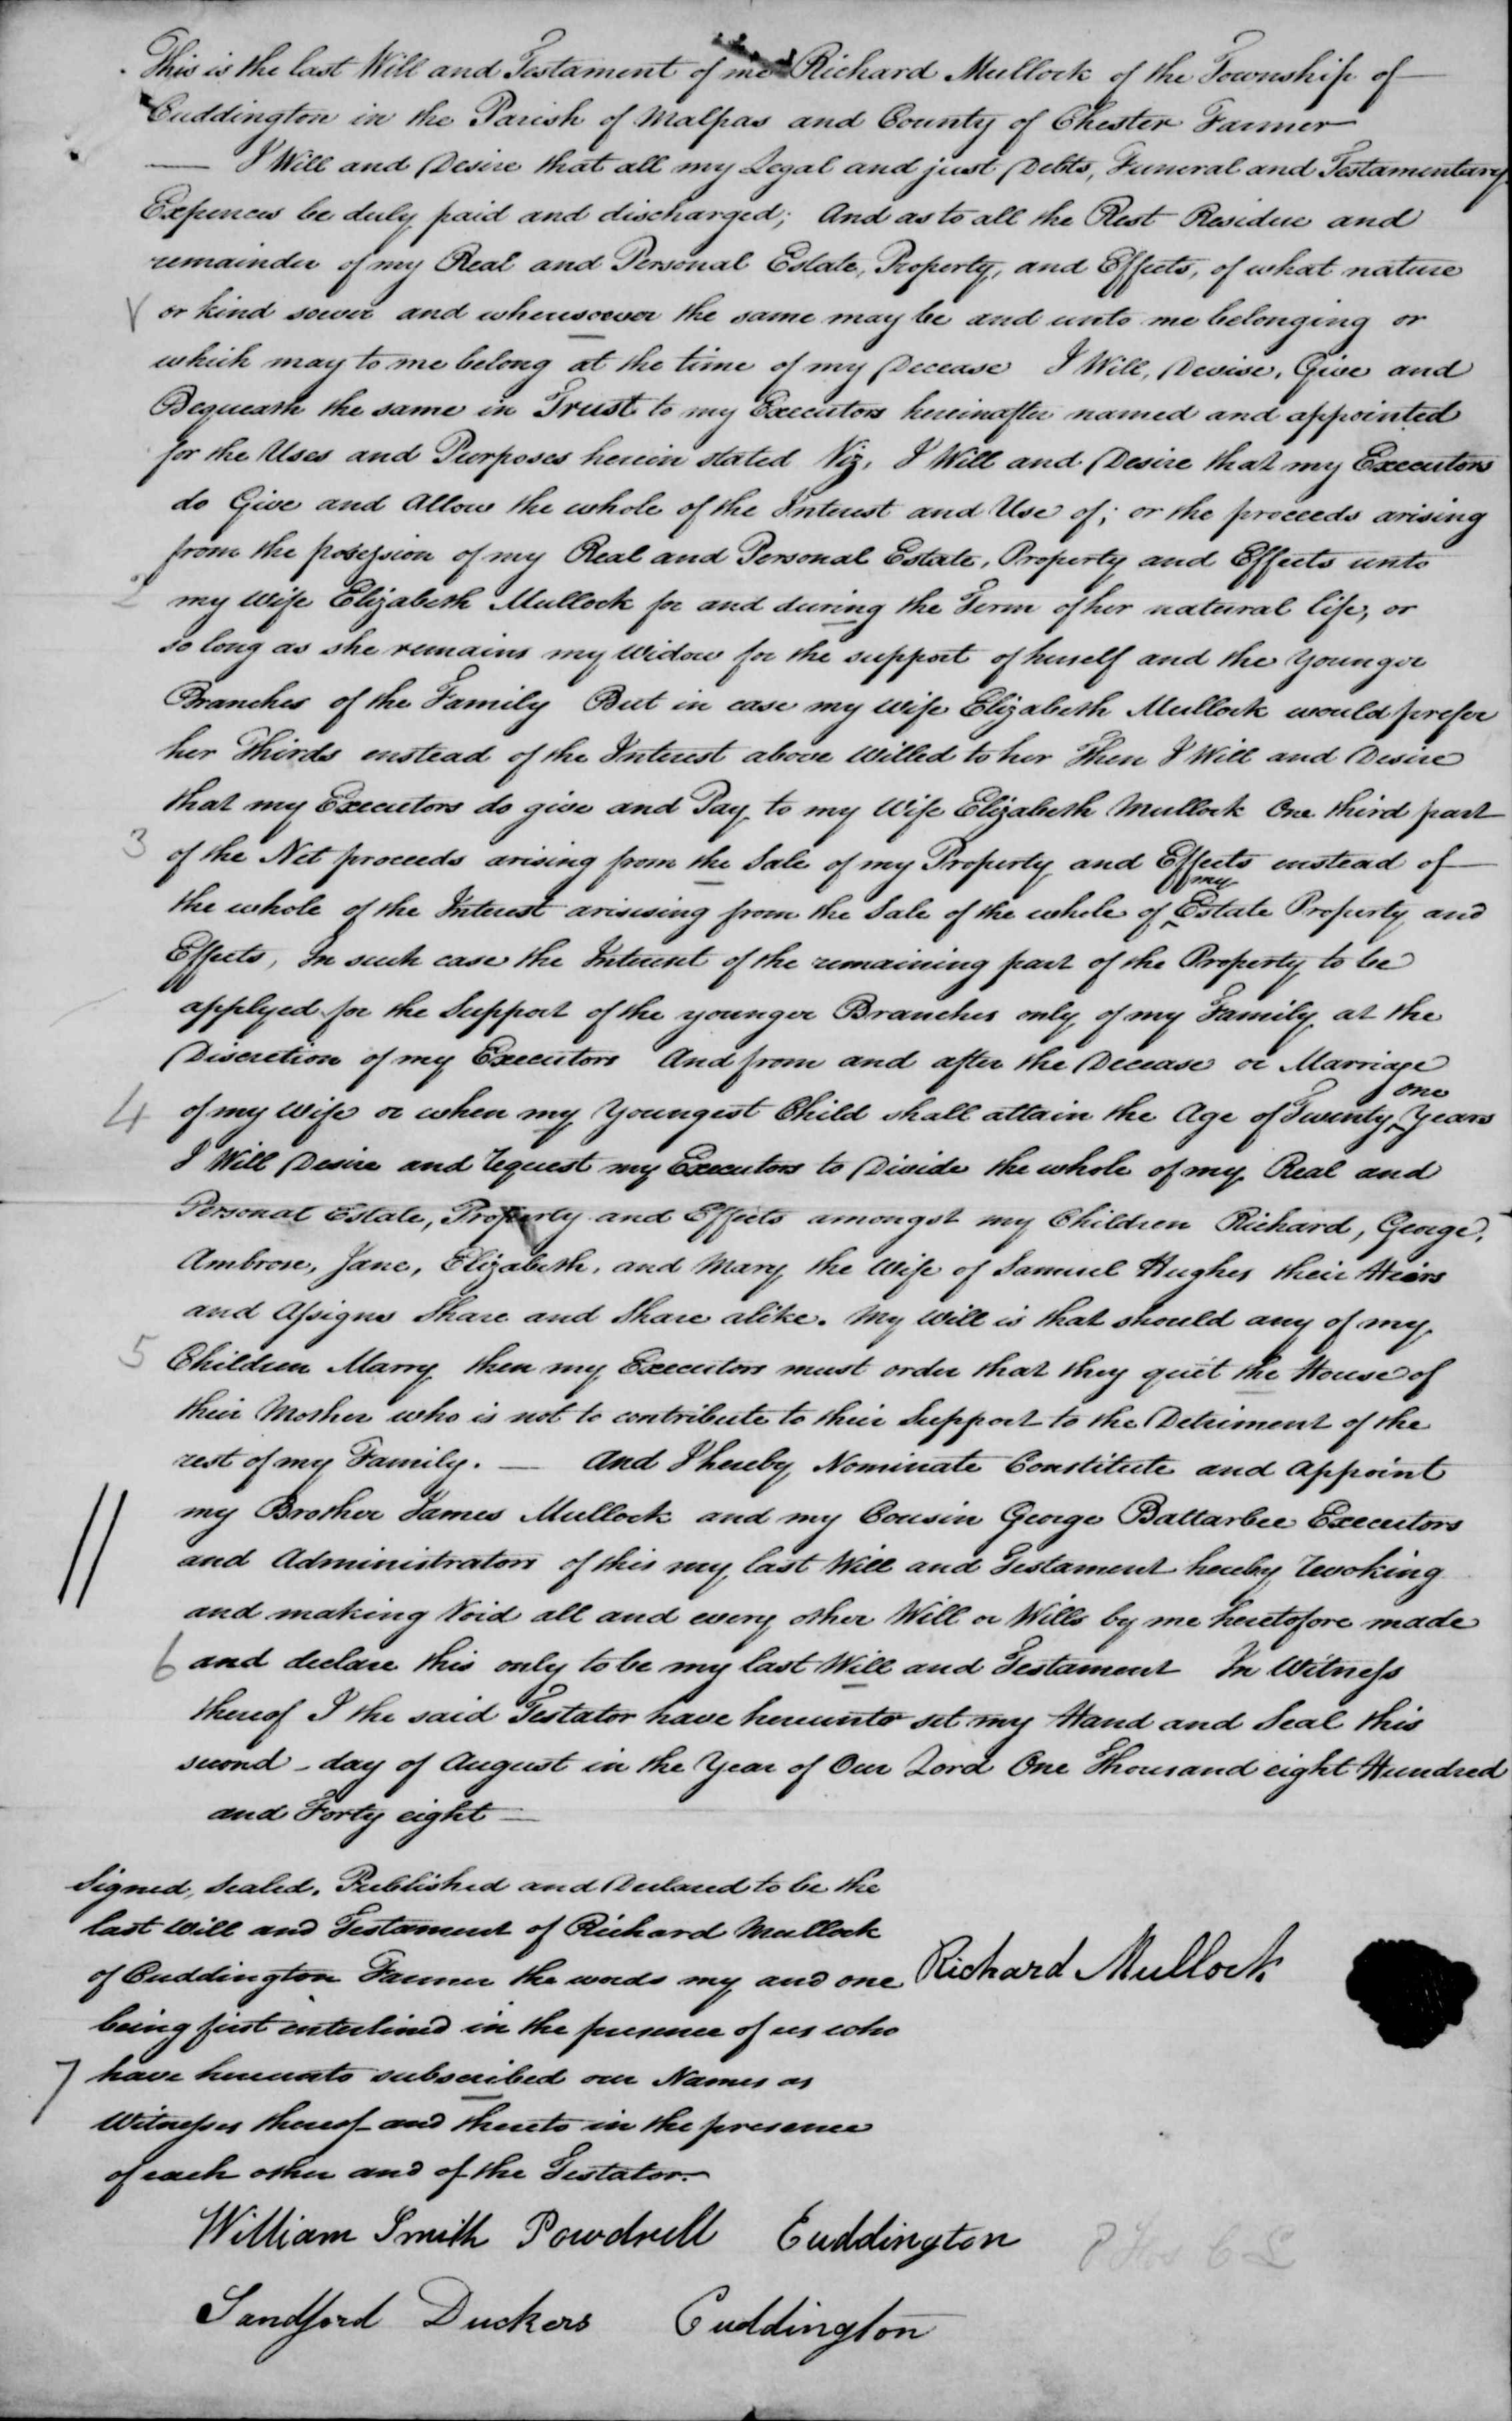 This is the last Will and Testament of me Richard Mullock of the Township of
Cuddington in the Parish of Malpas and County of Chester Farmer
I Will and Desire that all my Legal and just Debts, Funeral and Testamentary
Expences be duly paid and discharged; And as to all the Rest Residue and
remainder of my Real and Personal Estate, Property, and Effects, of what nature
or kind soever and wheresoever the same may be and unto me belonging or
which may to me belong at the time of my Decease I Will, Devise, Give and
Bequeath the same in Trust to my Executors hereinafter named and appointed
for the Uses and Purposes herein stated Viz, I Will and Desire that my Executors
do Give and Allow the whole of the Interest and Use of; or the proceeds arising
from the possession of my Real and Personal Estate, Property and Effects unto
2 my Wife Elizabeth Mullock for and during the Term of her natural life, or
so long as she remains my Widow for the support of herself and the Younger
Branches of the Family But in case my Wife Elizabeth Mullock would prefer
her Thirds enstead of the Interest above Willed to her Then I Will and Desire
that my Executors do give and Pay to my Wife Elizabeth Mullock One third part
3 of the Net proceeds arising from the Sale of my Property and Effects enstead of
the whole of the Interest arisising from the Sale of the whole of my Estate Property and
Effects, In such case the Interest of the remaining part of the Property to be
applyed for the Support of the younger Branches only of my Family at the
Discretion of my Executors And from and after the Decease or Marriage
4 of my Wife or when my Youngest Child shall attain the Age of Twenty one Years
I Will Desire and request my Executors to Divide the whole of my Real and
Personal Estate, Property and Effects amongst my Children Richard, George,
Ambrose, Jane, Elizabeth, and Mary the Wife of Samuel Hughes their Heirs
and Assigns Share and Share alike. My Will is that should any of my
5 Children Marry then my Executors must order that they quit the House of
their Mother who is not to contribute to their Support to the Detriment of the
rest of my Family. — And I hereby Nominate Constitute and Appoint
my Brother James Mullock and my Cousin George Battarbee Executors
and Administrators of this my last Will and Testament hereby revoking
and making Void all and every other Will or Wills by me heretofore made
6 and declare this only to be my last Will and Testament In Witness
thereof I the said Testator have hereunto set my Hand and Seal this
second day of August in the Year of Our Lord One Thousand eight Hundred
and Forty eight —
Signed, Sealed, Published and Declared to be the
last Will and Testament of Richard Mullock
of Cuddington Farmer the words my and one
Richard Mullock
being first enterlined in the presence of us who
7 have hereunto subscribed our Names as
Witnesses thereof and thereto in the presence
of each other and of the Testator.
William Smith Powdrell Cuddington
Sandford Duckers Cuddington